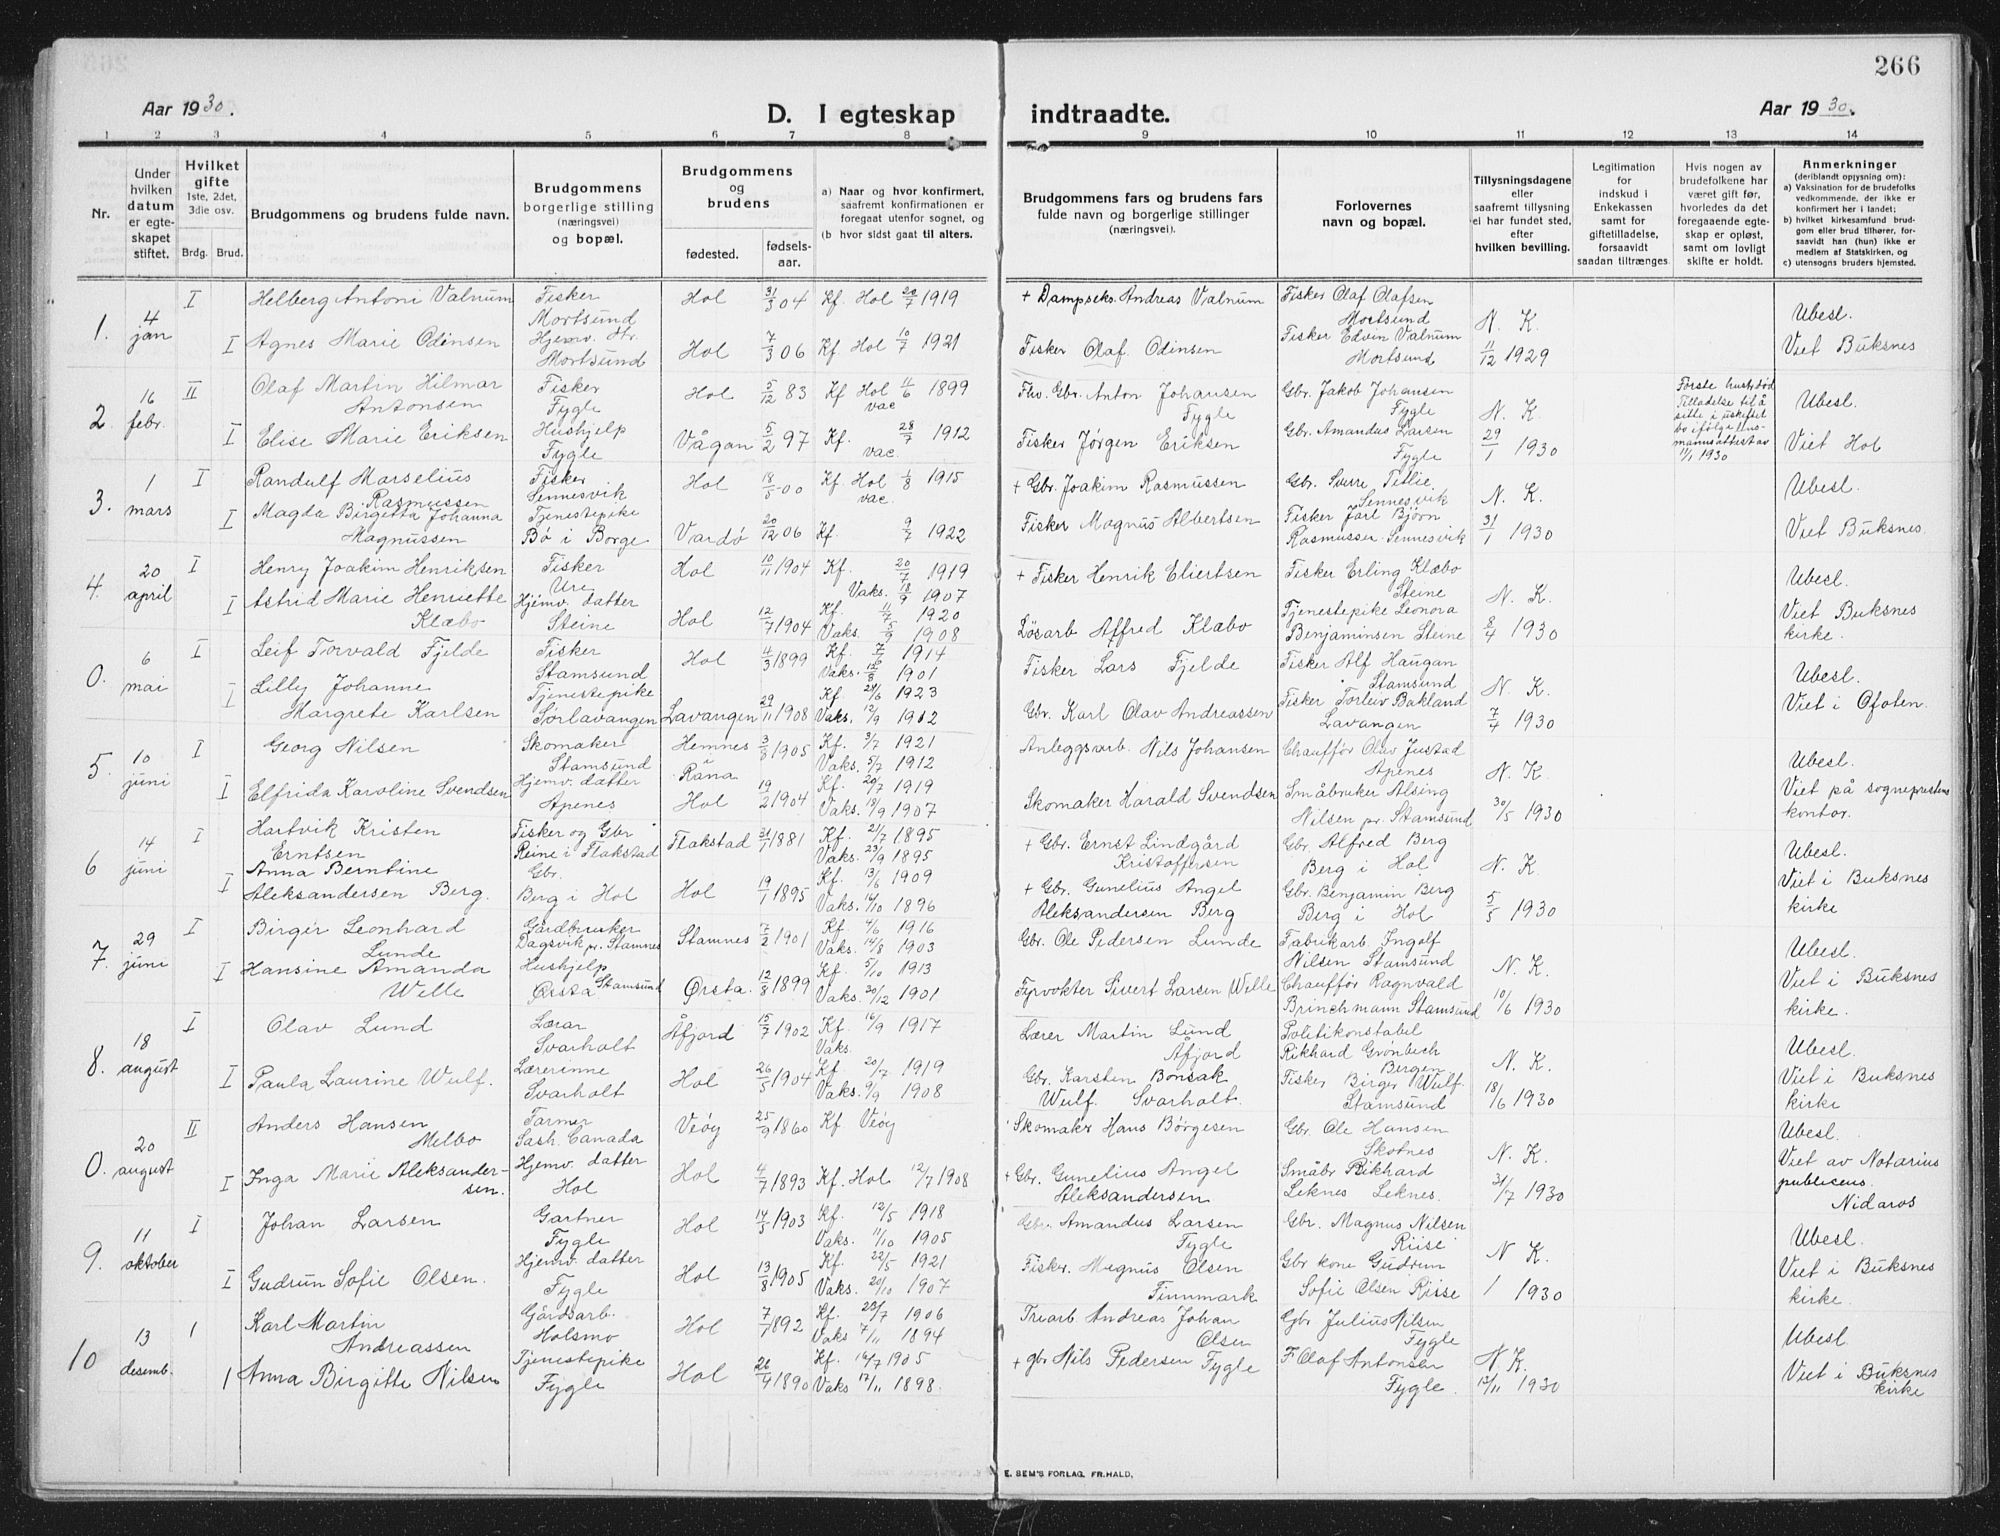 266
Aar 1930.
D. I egteskap indtraadte.
Aar 1930.
1 2 3 4 5 6 7 8 9 10 11 12 13 14
Nr.
Under hvilken datum er egteskapet stiftet.
Hvilket gifte 1ste, 2det, 3die osv.
Brdg. Brud.
Brudgommens og brudens fulde navn.
Brudgommens borgerlige stilling (næringsvei) og bopæl.
Brudgommens og brudens
fødested. fødselsaar.
a) Naar og hvor konfirmert, saafremt konfirmationen er foregaat utenfor sognet, og
(b hvor sidst gaat til alters.
Brudgommens fars og brudens fars fulde navn og borgerlige stillinger (næringsvei).
Forlovernes navn og bopæl.
Tillysningsdagene eller saafremt tillysning ei har fundet sted, efter hvilken bevilling.
Legitimation for indskud i Enkekassen samt for giftetilladelse, forsaavidt saadan tiltrænges.
Hvis nogen av brudefolkene har været gift før, hvorledes da det foregaaende egteskap er opløst, samt om lovligt skifte er holdt.
Anmerkninger (deriblandt opjysning om):
a) Vaksination for de brudefolks vedkommende, der ikke er konfirmert her i landet;
b) hvilket kirkesamfund brudgom eller brud tilhører, forsaavidt han (hun) ikke er medlem af Statskirken, og
c) utensogns bruders hjemsted.
1. 4 jan I Helberg Antoni Valnum Fisker Mortsund Hol 31/3 04 Kf. Hol 20/7 1919 + Dampseks. Andreas Valnum Fisker Olaf Olafsen Mortsund N. K. 11/12 1929 Ubesl.
I Agnes Marie Odinsen Hjemv. dtr. Mortsund Hol 7/3 06 Kf. Hol 10/7 1921 Fisker Olaf Odinsen Fisker Edvin Valnum Mortsund Viet Buksnes
2. 16 febr. II Olaf Martin Hilmar Antonsen Fisker Fygle Hol 5/12 83 Kf Hol 11/6 1899 vac Fhv. Gbr. Anton Johansen Fygle Gbr. Jakob Johansen Fygle N. K. 29/1 1930 Første hustr. død Tilladelse til å sitte i uskiftet bo ifølge lensmannsattest av 11/1 1930 Ubesl.
I Elise Marie Eriksen Hushjelp Fygle Vågan 5/2 97 Kf. vac. 28/7 1912 Fisker Jørgen Eriksen Gbr. Amandus Larsen Fygle Viet Hol
3. 1 mars I Randulf Marselius Rasmussen Fisker Sennesvik Hol 18/5 00 Kf. Hol 1/8 1915 vac. + Gbr. Joakim Rasmussen Gbr. Sverre Petlie Sennesvik N. K. 31/1 1930 Ubesl.
I Magda Birgitta Johanna Magnussen Tjenestepike Bø i Borge Vardø 20/12 06 Kf. 9/7 1922 Fisker Magnus Albertsen Fisker Jarl Bjørn Rasmussen Sennesvik Viet Buksnes
4. 20 april I Henry Joakim Henriksen Fisker Ure Hol 10/11 1904 Kf. 20/7 1919 Vaks. 18/9 1907 + Fisker Henrik Eliertsen Fisker Erling Klæbo Steine N. K. 8/4 1930 Ubesl.
I Astrid Marie Henriette Klæbo Hjemv. datter Steine Hol 12/7 1904 Kf. 11/7 1920 Vaks. 5/9 1908 Løsarb Alfred Klæbo Tjenestepike Leonora Benjaminsen Steine Viet Buksnes kirke.
0. 6 mai I Leif Torvald Fjelde Fisker Stamsund Hol 4/3 1899 Kf. 7/7 1914 Vaks. 12/8 1901 Fisker Lars Fjelde Fisker Alf Haugan Stamsund N. K. 7/4 1930 Ubesl.
I Lilly Johanne Margrete Karlsen Tjenestepike Sørlavangen Lavangen 29/11 1908 Kf 24/6 1923 Vaks. 12/9 1912 Gbr. Karl Olav Andreassen Fisker Torleiv Bakland Lavangen Viet i Ofoten.
5. 10 juni I Georg Nilsen Skomaker Stamsund Hemnes Rana 3/3 1905 Kf. 3/7 1921 Vaks. 5/7 1912 Anleggsarb. Nils Johansen Chauffør Olav Justad Apenes N. K. 30/5 1930 Ubesl.
I Elfrida Karoline Svendsen Hjemv. datter Apenes Hol 19/2 1904 Kf. 20/7 1919 Vaks. 18/9 1907 Skomaker Harald Svendsen Småbruker Alsing Nilsen pr. Stamsund Viet på sogneprestens kontor.
6 14 juni I Hartvik Kristen Erntsen Fisker og Gbr Reine i Flakstad Flakstad 31/7 1881 Kf. 21/7 1895 Vaks. 23/9 1895 + Gbr. Ernst Lindgård Kristoffersen Gbr. Alfred Berg Berg i Hol N. K. 5/5 1930 Ubesl.
I Anna Berntine Aleksandersen Berg. Gbr. Berg i Hol Hol 19/1 1895 Kf. 13/6 1909 Vaks. 16/10 1896 + Gbr. Gunelius Angel Aleksandersen Berg Gbr. Benjamin Berg Berg i Hol Viet i Buksnes kirke
7. 29 juni I Birger Leonhard Lunde Gårdbruker Dagsvik pr. Stamnes Stamnes 7/2 1901 Kf 4/6 1916 Vaks. 14/8 1903 Gbr. Ole Pedersen Lunde Fabrikarb Ingolf Nilsen Stamsund N. K. 10/6 1930 Ubesl.
I Hansine Amanda Welle Hushjelp Ørsta Stamsund Ørsta. 12/8 1899 Kf. 5/10 1913 Vaks. 20/12 1901 Fyrvokter Sivert Larsen Welle Chauffør Ragnvald Brinchmann Stamsund Viet i Buksnes kirke.
8. 18 august I Olav Lund Lærar Svarholt Åfjord 15/7 1902 Kf. 16/9 1917 Vaks. Lærer Martin Lund Åfjord Politikonstabel Rikhard Grønbech Bergen N. K. 18/6 1930 Ubesl.
I Paula Laurine Wulf. Lærerinne Svarholt Hol 26/5 1904 Kf. 20/7 1919 Vaks. 9/9 1908 Gbr. Karsten Bonsak Wulf. Svarholt. Fisker Birger Wulf. Stamsund Viet i Buksnes kirke
0. 20 august II Anders Hansen Melbo Farmer Sash. Canada Veøy 25/9 1860 Kf Veøy Skomaker Hans Børgesen Gbr. Ole Hansen Skotnes N. K. 31/7 1930 Ubesl.
I Inga Marie Aleksandersen. Hjemv. datter Hol Hol 4/7 1893 Kf. Hol 12/7 1908 + Gbr. Gunelius Angel Aleksandersen Småbr Rikhard Leknes Leknes. Viet av Notarius publicus Nidaros
9. 11 oktober I Johan Larsen Gartner Fygle Hol 14/5 1903 Kf. 12/5 1918 Vaks. 11/10 1905 Gbr. Amandus Larsen Fygle Gbr. Magnus Nilsen Riise N K. 1 1930 Ubesl.
I Gudrun Sofie Olsen. Hjemv. datter Fygle Hol 13/8 1905 Kf. 22/5 1921 Vaks. 20/10 1907 Fisker. Magnus Olsen Finnmark Gbr kone Gudrum Sofie Olsen Risse Viet i Buksnes kirke.
10 13 desemb. 1 Karl Martin Andreassen Gårdsarb. Holsmo Hol 7/7 1892 Kf. 22/7 1906 Vaks 7/11 1894 Truarb Andreas Johan Olsen Gbr Julius Nilsen Fygle N. K. 12/11 1930 Ubesl
1 Anna Birgitte Nilsen Tjenestepike Fygle Hol 26/4 1890 Kf. 16/7 1905 Vaks 17/11 1898. + gbr Nils Pedersen Fygle F. Olaf Antonsen Fygle. Viet i Buksnes kirke
E. SEM'S FORLAG. FR.HALD.